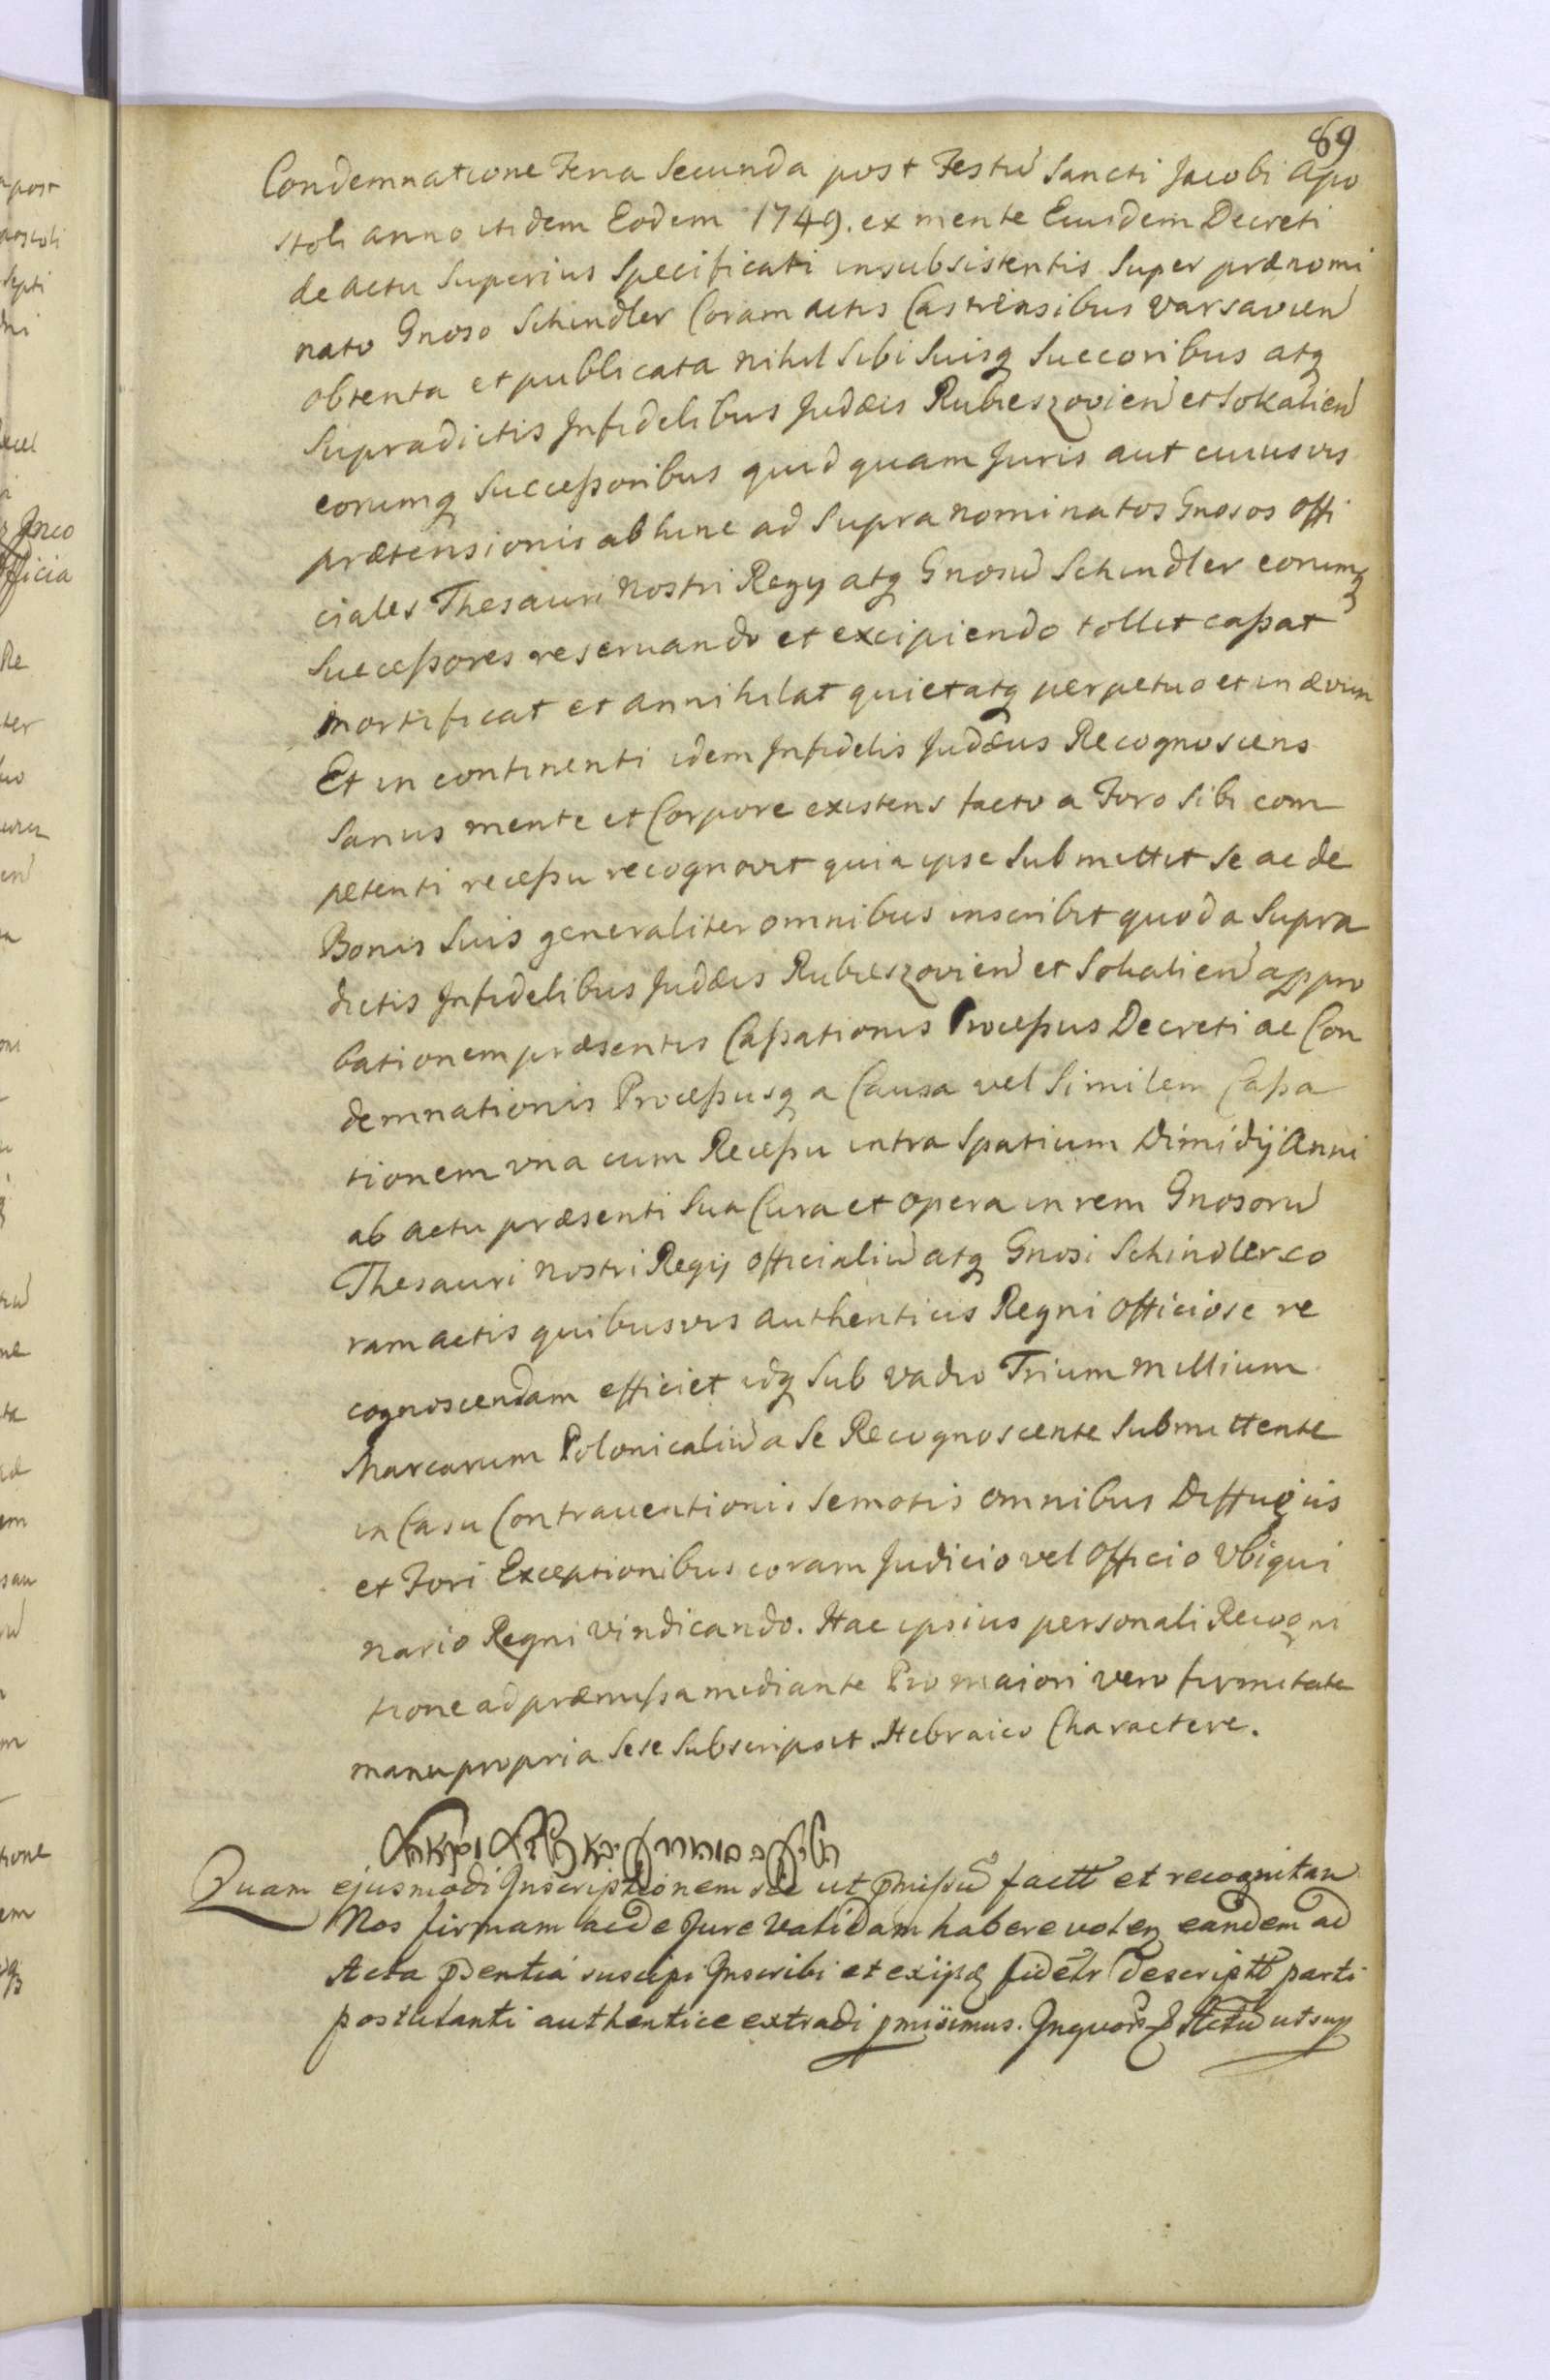 69
Condemnatione Feria Secunda post Festū Sancti Jacobi Apo
stoli anno itidem Eodem 1749. ex mente Eiusdem Decreti
de actu Superius Specificati insubsistentis Super prænomi
nato Gnoso Schindler Coram actis Castrensibus Varsavien̄
obtenta et publicata nihil Sibi Suisq Succoribus atq
Supradictis Infidelibus Judæis Rubieszovien̄ et Sokalien̄
eorumq Successoribus quidquam Juris aut cuiusvis
prætensionis abhinc ad Supra nominatos Gnosos Offi
ciales Thesauri nostri Regij atq Gnosū Schindler eorumq
Successores reservando et excipiendo tollit cassat
mortificat et annihilat quietatq perpetuo et in ævum
Et in continenti idem Infidelis Judæus Recognoscens
Sanus mente et Corpore existens facto a Foro Sibi com
petenti recessu recognovit quia ipse Submittit Se ac de
Bonis Suis generaliter omnibus inscribit quod a Supra
dictis Infidelibus Judæis Rubieszovien̄ et Sokalien̄ appro
bationem præsentis Cassationis Processus Decreti ac Con
demnationis Processusq a Causa vel Similem Cassa
tionem una cum Recessu intra Spatium Dimidij Anni
ab actu præsenti Sua Cura et opera in rem Gnosorū
Thesauri nostri Regij officialiū atq Gnosi Schindler co
ram actis quibusvis authenticis Regni Officiose re
cognoscendam efficiet idq Sub vadio Trium millium
Marcarum Polonicaliū a Se Recognoscente Submittente
in Casu Contraventionis Semotis omnibus Diffugiis
et Fori Exceptionibus coram Judicio vel Officio Ubiqui
nario Regni vindicando. Hac ipsius personali Recogni
tione ad præmissa mediante Pro maiori vero firmitate
manu propria Sese Subscripsit Hebraico Charactere.
Quam ejusmodi Inscriptionem sic ut pmissū factt et recognitan
Nos firmam ac de Jure validam habere volen eandem ad
Acta psentia suscipi Inscribi et exijsd fidelr descriptt parti
postulanti authentice extradi pmisimus. In quor Actū ut sup